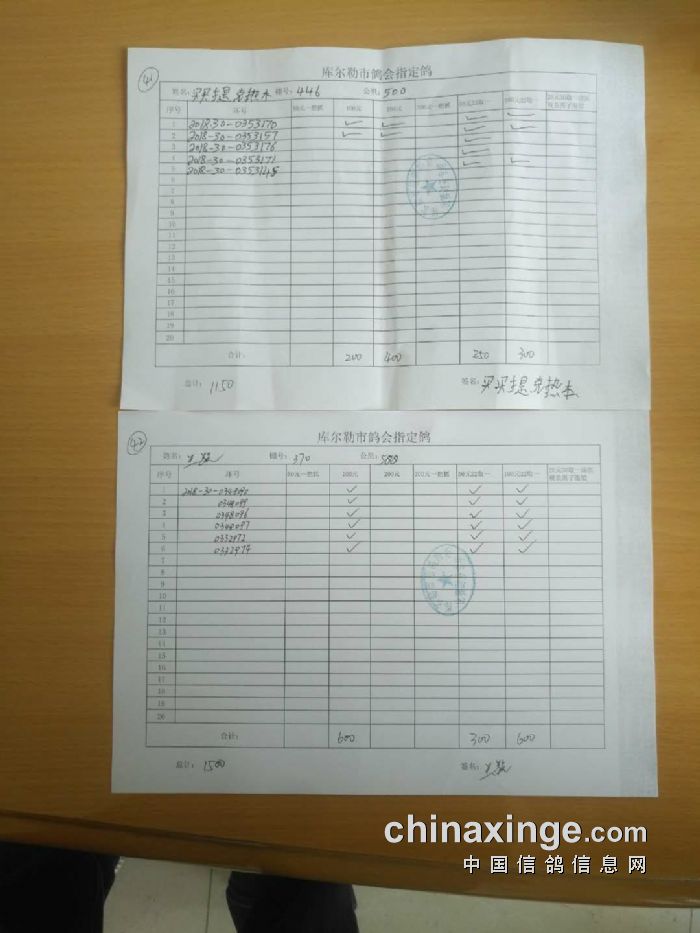 41
库尔勒市鸽会指定鸽
姓名: 买买提.克热木 棚号: 446 公里: 500
序号 环号 50元一抱抓 100元 200元 50元22取一 100元22取一
1 2018-30-0353170 ✓ ✓ ✓ ✓
2 2018-30-0353157 ✓ ✓ ✓ ✓
3 2018-30-0353176 ✓
4 2018-30-0353171 ✓
5 2018-30-0353148 ✓ ✓
6
7
8
9
10
11
12
13
14
15
16
17
18
19
20
合计: 200 400 250 300
总计: 1150 签名: 买买提.克热木
42
库尔勒市鸽会指定鸽
姓名: 棚号: 370 公里: 500
序号 环号 50元一抱抓 100元 200元 50元22取一 100元22取一
1 2018-30-0348090 ✓ ✓ ✓
2 0348099 ✓ ✓ ✓
3 0348096 ✓ ✓ ✓
4 0348097 ✓ ✓ ✓
5 0332972 ✓ ✓ ✓
6 0332974 ✓ ✓ ✓
7
8
9
10
11
12
13
14
15
16
17
18
19
20
合计: 600 300 600
总计: 1500 签名:
chinaxinge.com
中国信鸽信息网